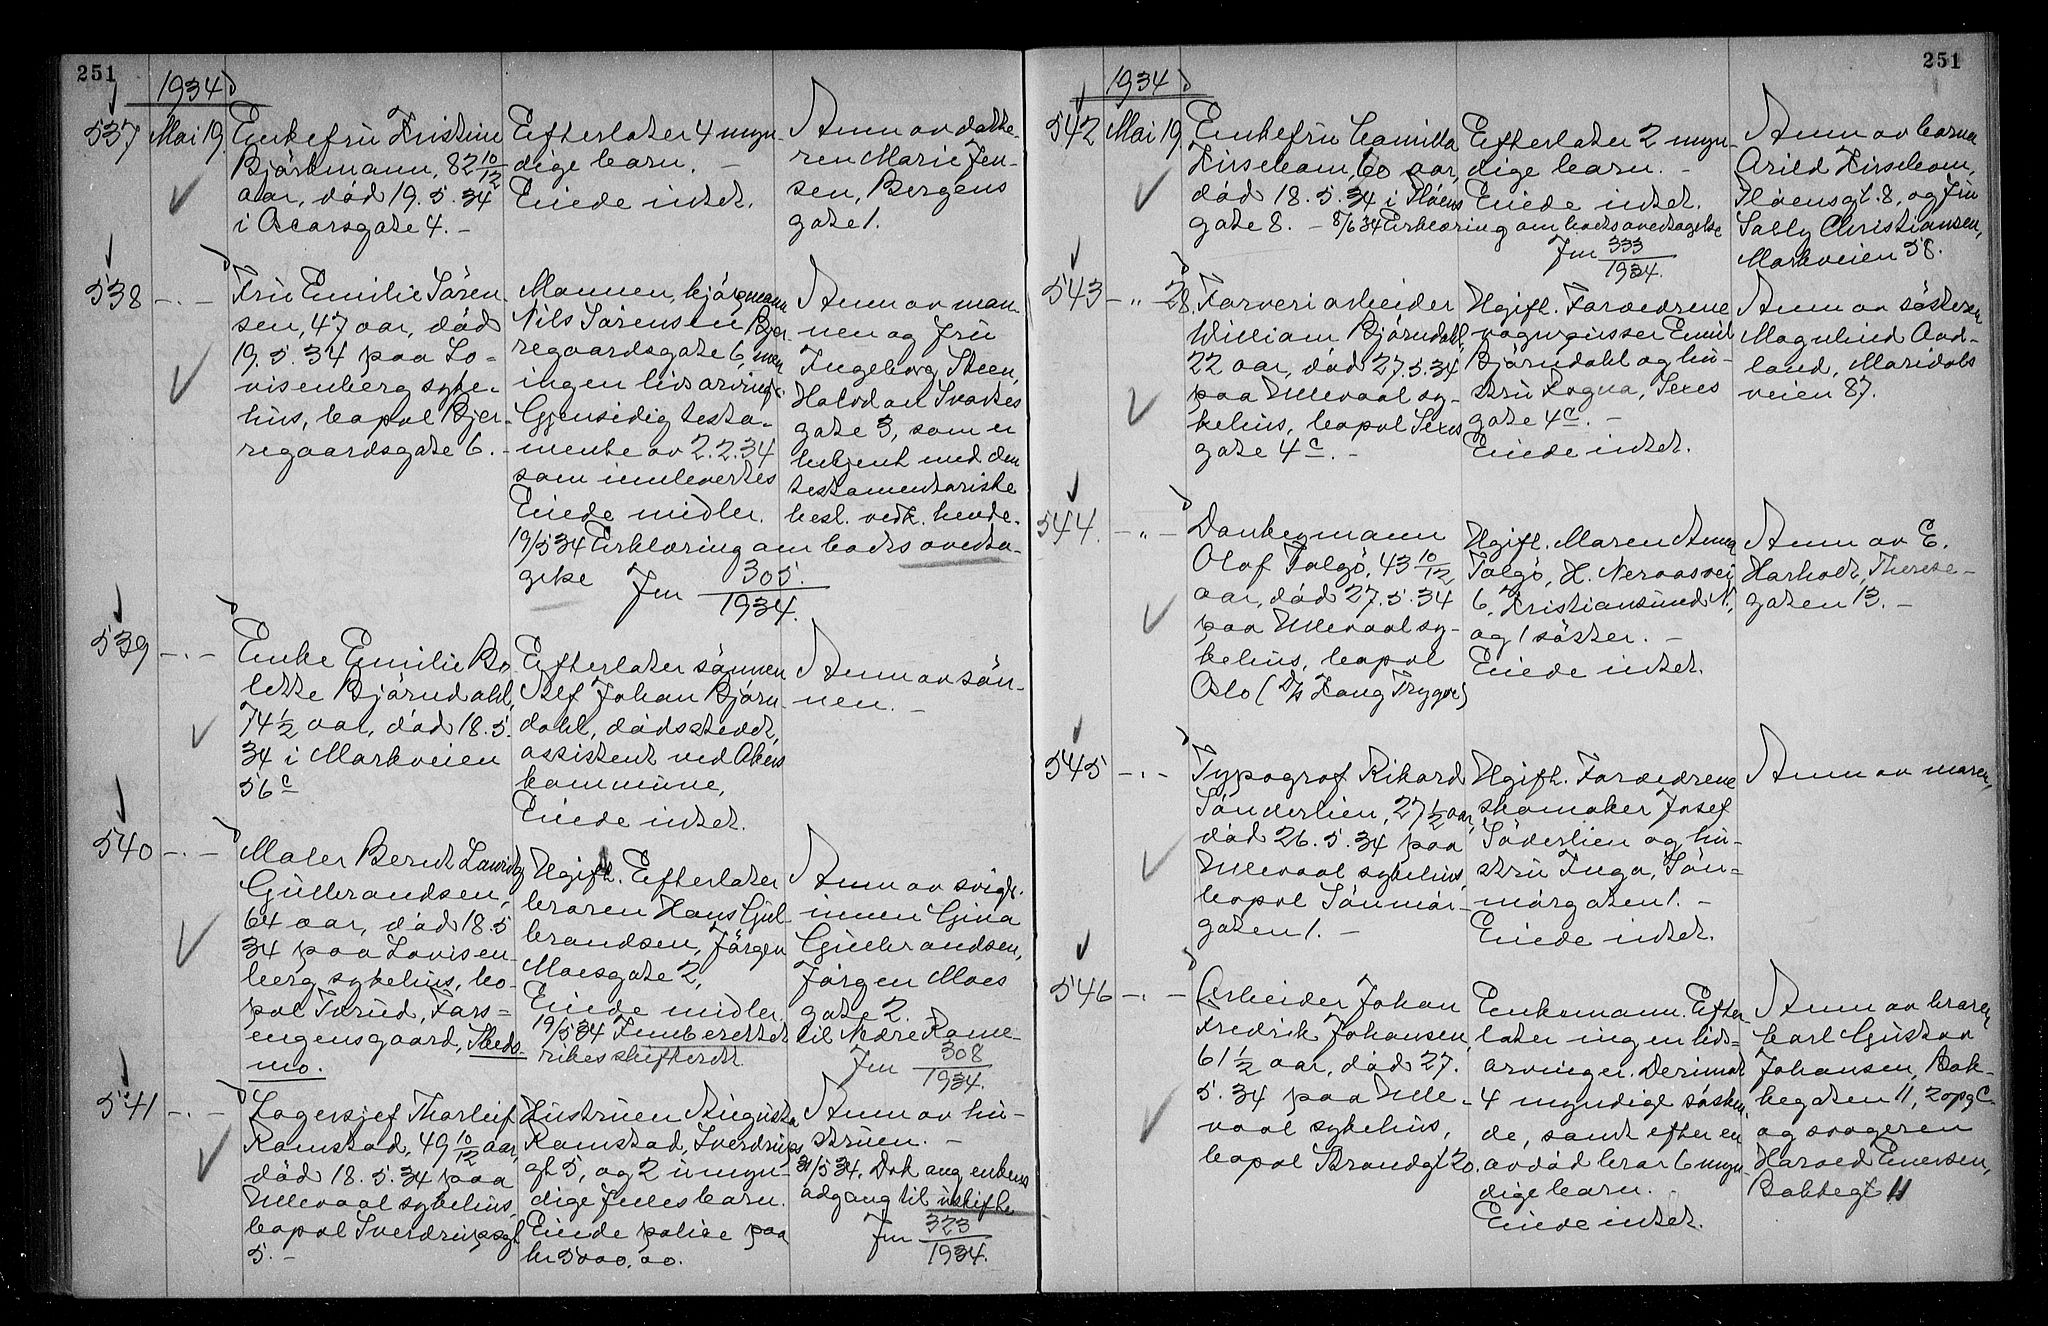 251
1934
537 Mai 19.
Enkefru Kristine
Björkmann, 82 10/12
aar, död 19.5.34
i Oscarsgate 4. -
Efterlater 4 myn-
dige barn. -
Eiede intet.
Anm av datte-
ren Marie Jen-
sen, Bergens
gate 1.
538 -.-
Fru Emilie Sören-
sen, 47 aar, död
19.5.34 paa Lo-
visenberg syke-
hus, bopæl Bjer-
regaardsgate 6. -
Mannen, kjöpmann
Nils Sörensen Bjer
regaardsgate 6, men
ingen livsarving.
Gjensidig testa-
mente av 2.2.34
som innlevertes
Eiede midler.
19/5 34 Erklæring om boets overta-
gelse Jnr 305./1934.
Anm av man-
nen og fru
Ingeborg Steen,
Halvdan Svartes
gate 3, som er
bekjent med den
testamentariske
best. vedk. hende.
539 -.-
Enke Emilie Bo
lette Björndahl,
74 1/2 aar, död 18.5.
34 i Markveien
56 c
Efterlater sönnen
Alf Johan Björn-
dahl, dödsstedet,
assistent ved Akers
kommune,
Eiede intet.
Anm av sön-
nen. -
540 -.-
Maler Bernt Lauritz
Gulbrandsen,
64 aar, död 18.5
34 paa Lovisen-
berg sykehus, bo-
pæl Torud, Fors=
engensgaard, Skeds
mo.
Ugift. Efterlater
broren Hans Gul
brandsen, Jörgen
Moesgate 2,
Eiede midler.
19/5 34 Innberettet til Nedre Rome-
rikes skifterett. Jnr 308/1934.
Anm av svigr.
innen Gina
Gulbrandsen,
Jörgen Moes
gate 2.
541 -.-
Lagersjef Thorleif
Ramstad, 49 10/12 aar,
död 18.5.34 paa
Ullevaal sykehus,
bopæl Sverdrupsgt
5. -
Hustruen Augusta
Ramstad, Sverdrups
gt 5, og 2 umyn-
dige felles barn.
Eiede police paa
kr 5000,00.
Anm av hu-
struen. -
31/5 34. Dok ang enkens
adgang til uskifte
Jnr 323/1934.
251
1934
542 Mai 19.
Enkefru Camilla
Kirseboom, 60 aar,
död 18.5.34 i Flöens
gate 8. -
Efterlater 2 myn-
dige barn. -
Eiede intet.
8/6 34 Erklæring om boets overtagelse
Jnr 333/1934.
Anm av barna
Arild Kirsebom,
Flöensgt. 8, og fru
Sally Christiansen,
Markveien 58.
543 -"- 28.
Farveriarbeider
William Björndahl,
22 aar, död 27.5.34
paa Ullevaal sy-
kehus, bopæl Sexes
gate 4 c. -
Ugift. Forældrene
vognpusser Emil
Björndahl og hu-
stru Ragna, Sexes
gate 4 c. -
Eiede intet.
Anm av söstern
Magnhild Aad-
land, Maridals
veien 87.
544. -"-
Donkeymann
Olaf Talgö, 43 10/12
aar, död 27.5.34
paa Ullevaal sy-
kehus, bopæl
Oslo (D/s Haug Trygve)
Ugift. Maren Anna
Talgö, H. Nervaasvei
6, Kristiansund N.,
og 1 söster. -
Eiede intet.
Anm av E.
Harholt, Therese-
gaten 13. -
545 -.-
Typograf Rikard
Sönderlien, 27 1/2 aar,
död 26.5.34 paa
Ullevaal sykehus,
bopæl Sönmör-
gaten 1. -
Ugift. Forældrene
skomaker Josef
Söderlien og hu-
stru Inga, Sön=
mörgaten 1. -
Eiede intet.
Anm av moren,
546 -.-
Arbeider Johan
Fredrik Johansen,
61 1/2 aar, död 27.
5.34 paa Ulle-
vaal sykehus,
bopæl Strandgt 20.
Enkemann. Efter-
later ingen livs=
arvinger. Derimot
4 myndige sösken-
de, samt efter en
avdöd bror 6 myn-
dige barn.
Eiede intet.
Anm av broren
Carl Gustav
Johansen, Bak-
kegaten 11, 2 opg C-
og svogeren
Harald Emersen,
Bakkegt 11